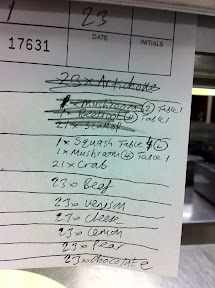 1 23
17631 DATE INITIALS
23 x Artichoke
1 x Mushroom (2) Table 1
1 x (4) Table 1
21 x Scallop
1 x Squash Table 4 (L)
1 x Mushroom (4) Table 1
21 x Crab
23 x Beef
23 x Venison
23 x Cheese
23 x Lemon
23 x Pear
23 x Chocolate